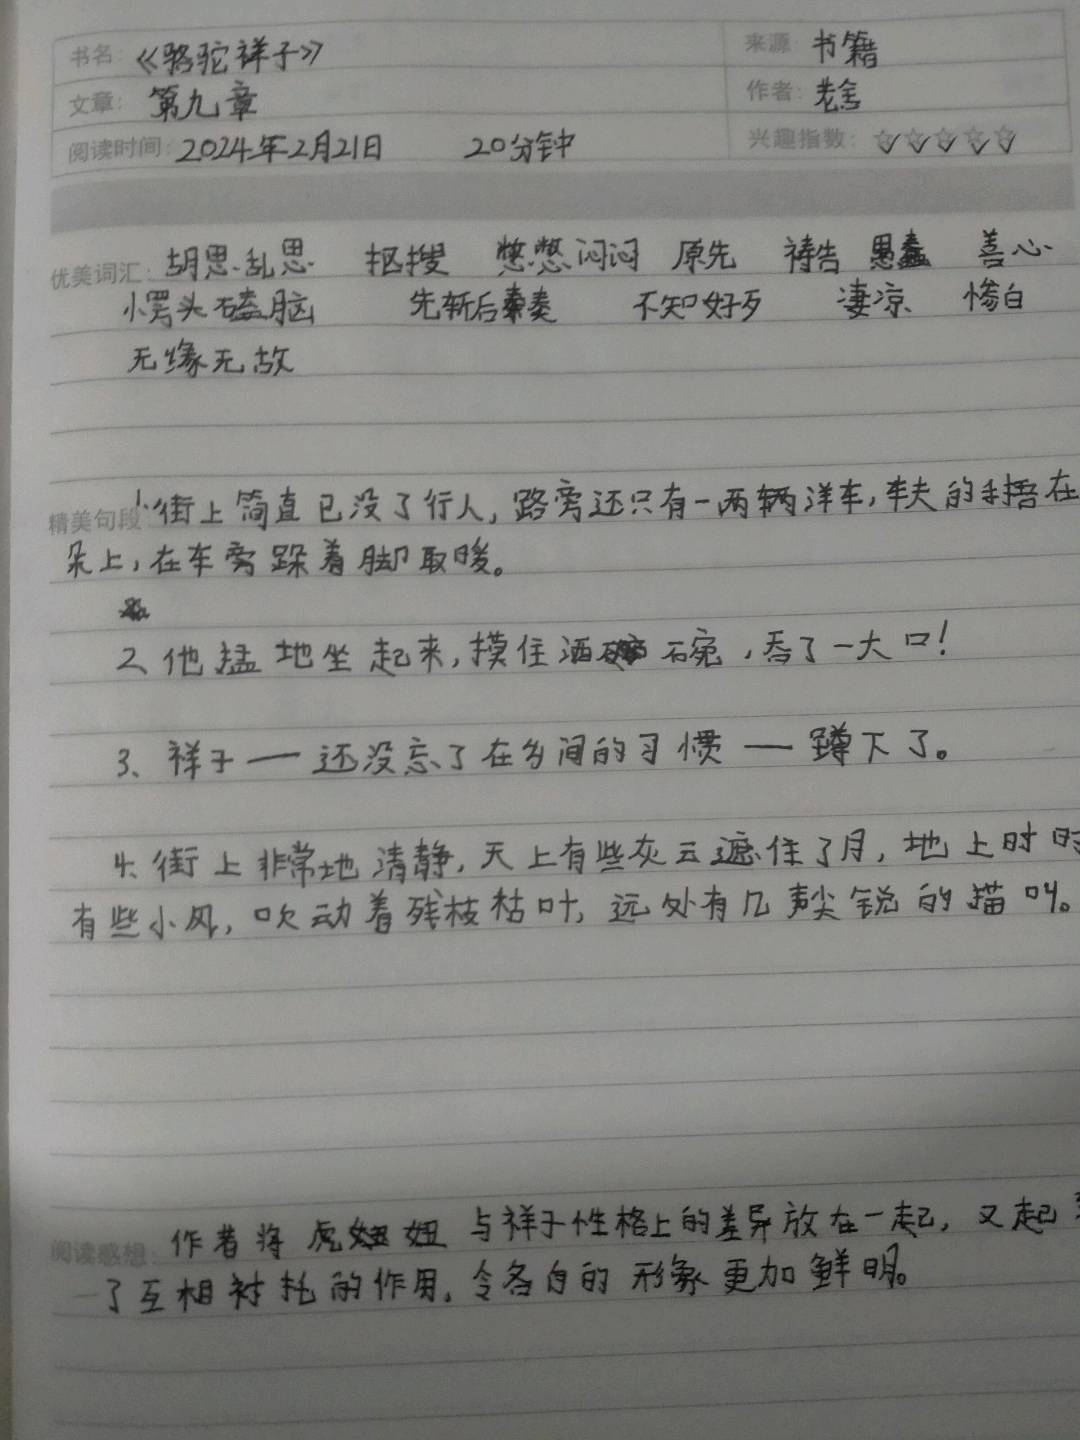 书名：《骆驼祥子》 来源：书籍
文章：第九章 作者：老舍
阅读时间：2024年2月21日 20分钟 兴趣指数：☆☆☆☆☆
优美词汇：胡思乱思 抠搜 憋憋闷闷 原先 祷告 愚蠢 善心
愣头磕脑 先斩后奏 不知好歹 凄凉 惨白
无缘无故
精美句段：1、街上简直已没了行人，路旁还只有一两辆洋车，车夫的手捂在
朵上，在车旁跺着脚取暖。
2、他猛地坐起来，摸住酒碗，吞了一大口！
3、祥子——还没忘了在乡间的习惯——蹲下了。
4、街上非常地清静，天上有些灰云遮住了月，地上时时
有些小风，吹动着残枝枯叶，远处有几声尖锐的猫叫。
阅读感想：作者将虎妞妞与祥子性格上的差异放在一起，又起
了互相衬托的作用，令各自的形象更加鲜明。